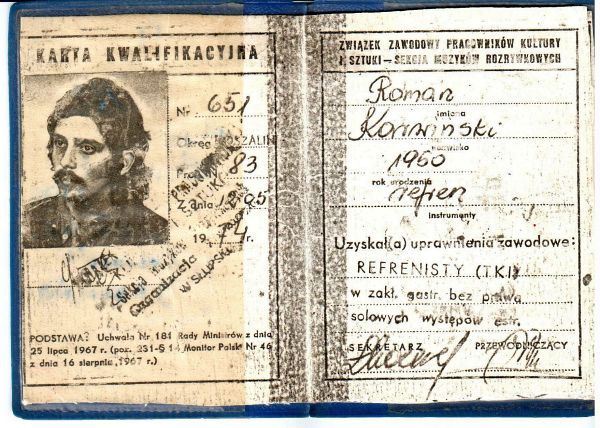 KARTA KWALIFIKACYJNA
Nr 651
Okręg KOSZALIN
83
Z dnia 12.05
1974 r.
Organizacja
w Słupsku
PODSTAWA: Uchwała Nr 181 Rady Ministrów z dnia
25 lipca 1967 r. (poz. 231-§ 14 Monitor Polski Nr 46
z dnia 16 sierpnia 1967 r.)
ZWIĄZEK ZAWODOWY PRACOWNIKÓW KULTURY
I SZTUKI – SEKCJA MUZYKÓW ROZRYWKOWYCH
Roman
imiona
nazwisko
1950
rok urodzenia
refren
instrumenty
Uzyskał(a) uprawnienia zawodowe:
REFRENISTY (TKI)
w zakł. gastr. bez prawa
solowych występów estr.
SEKRETARZ PRZEWODNICZĄCY